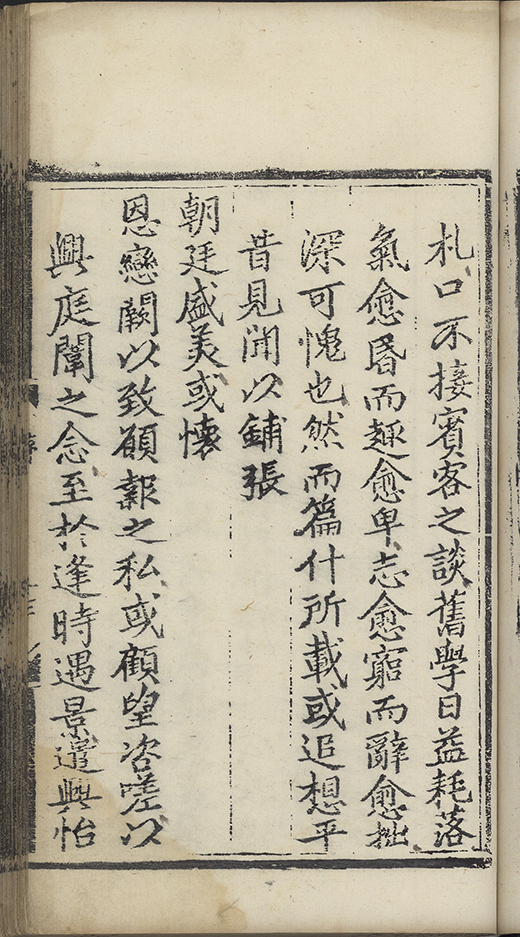 札口不接賓客之談舊學日益耗落
氣愈昬而趣愈卑志愈窮而辭愈拙
深可愧也然而篇什所載或追想平
昔見聞以鋪張
朝廷盛美或懷
恩戀闕以致願報之私或顧望咨嗟以
興庭闈之念至於逢時遇景遣興怡